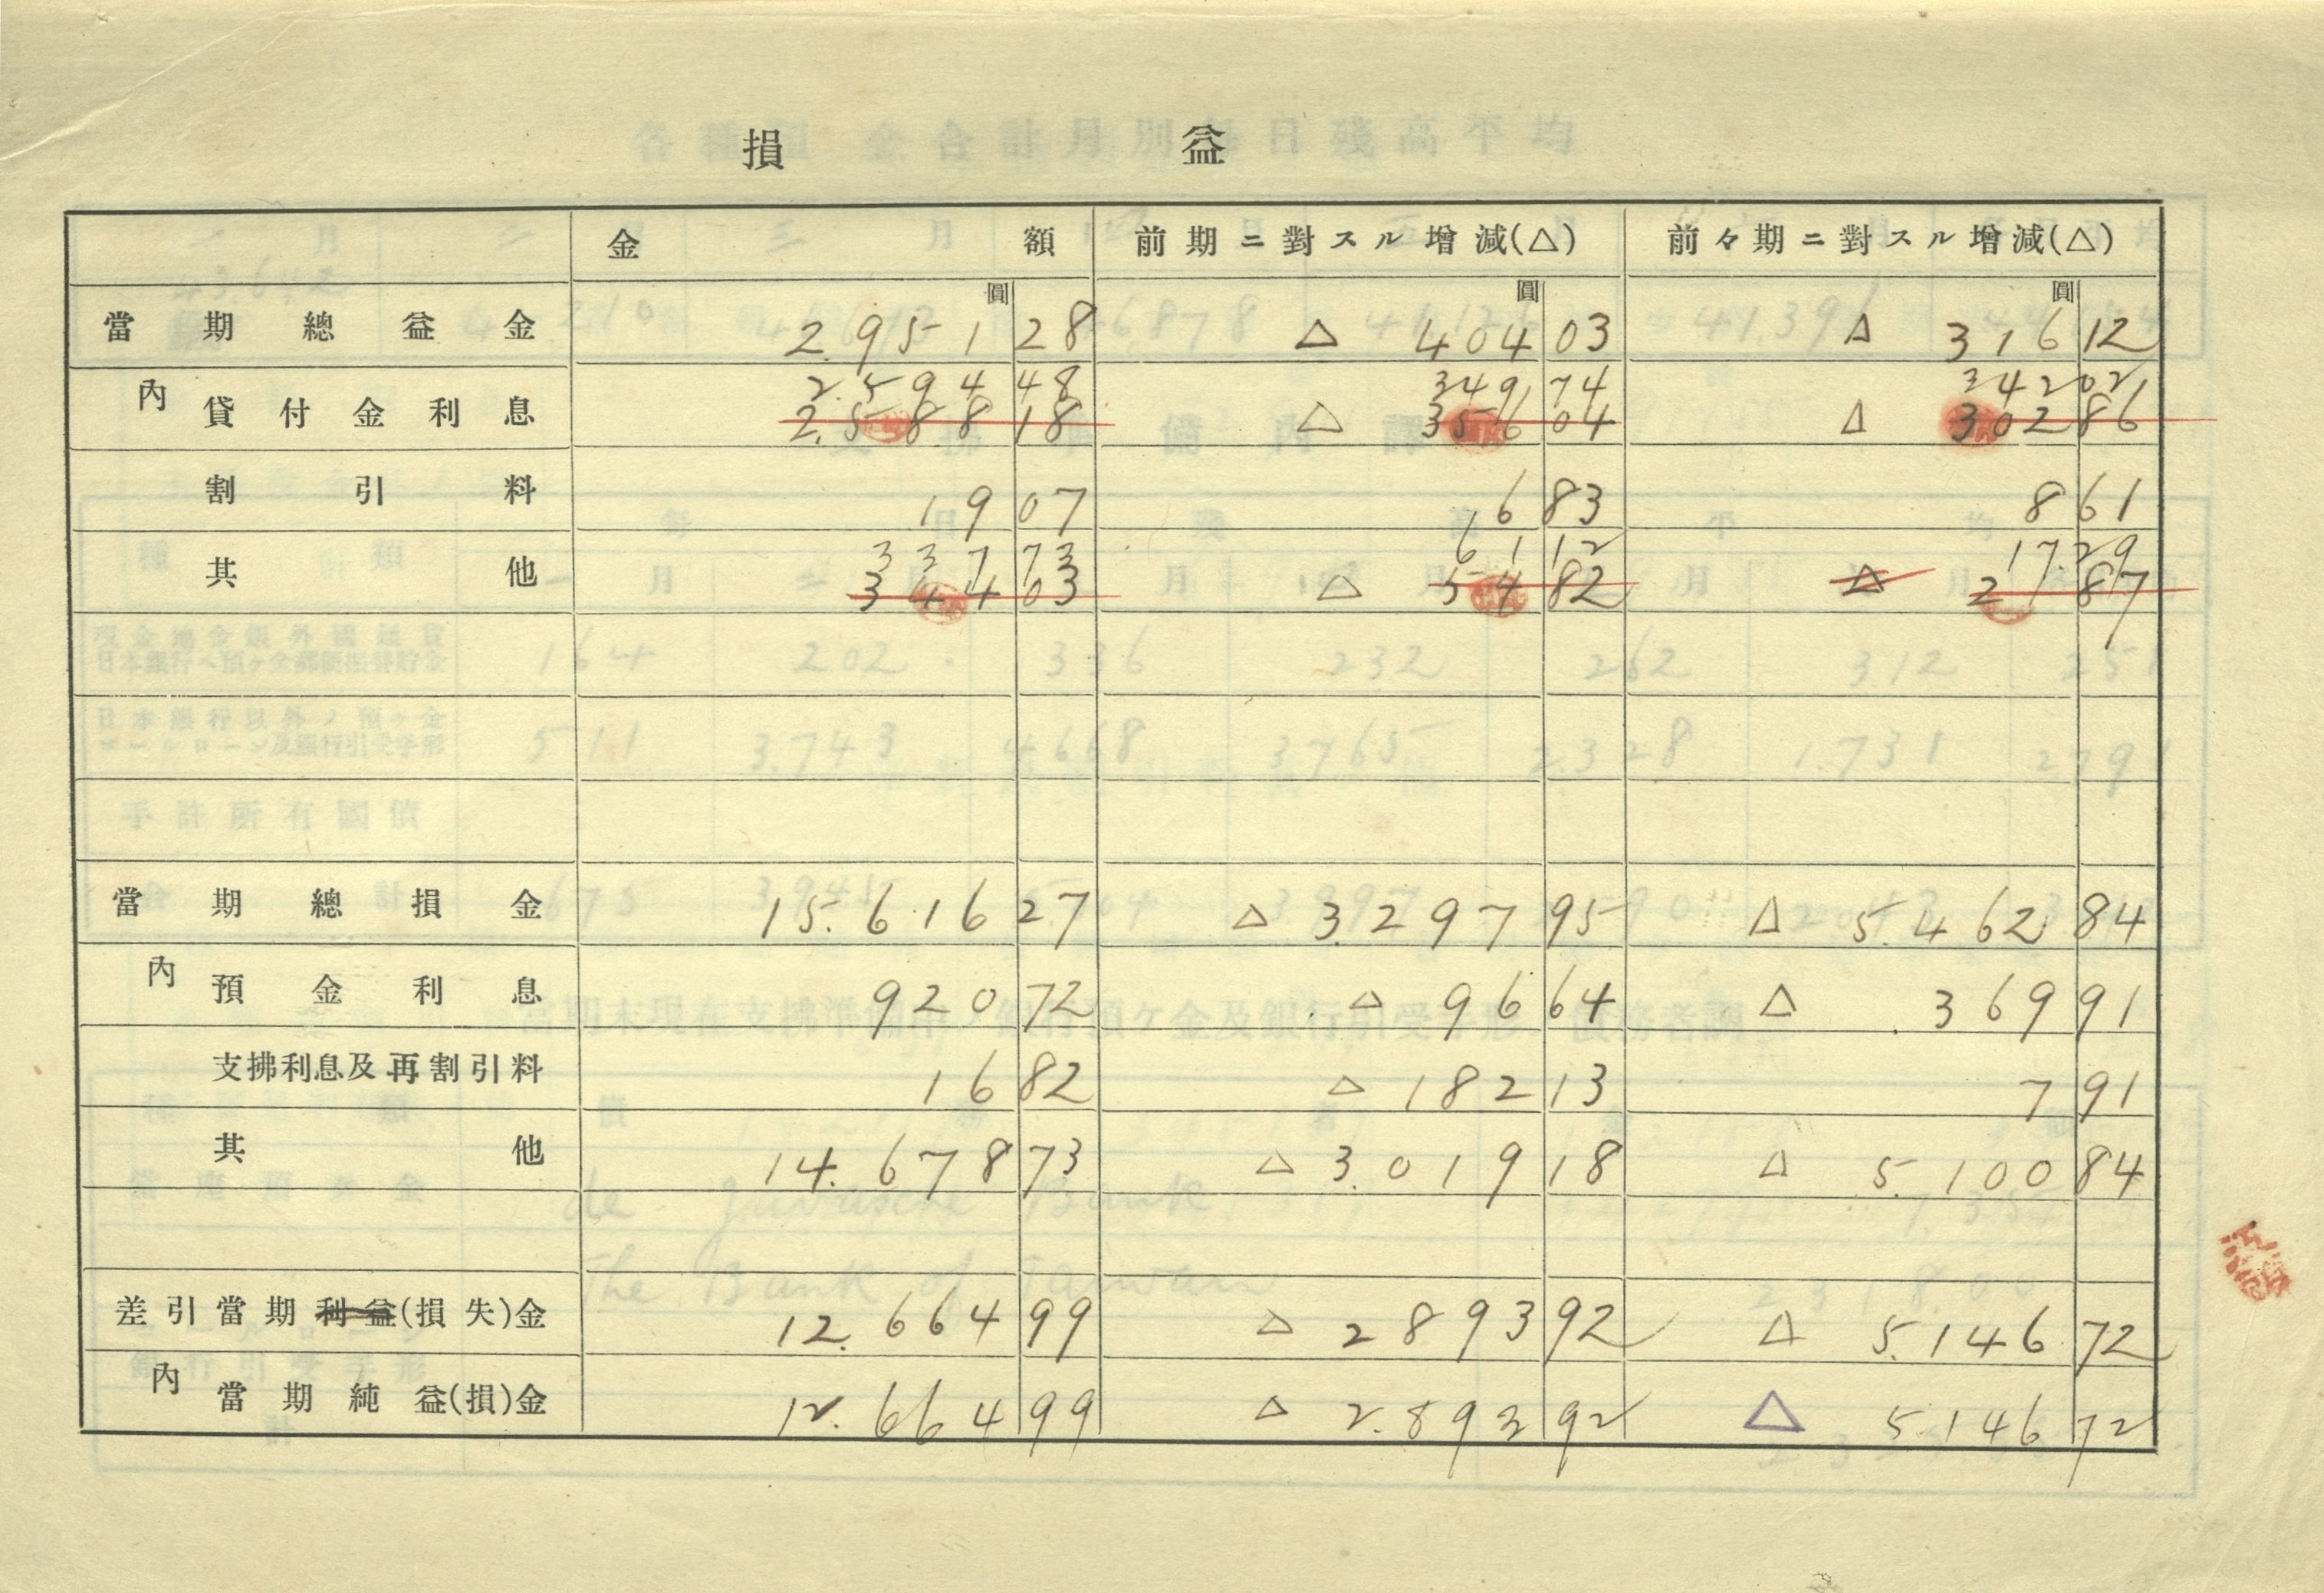 損益
金額 前期ニ對スル增減(△) 前々期ニ對スル增減(△)
圓 圓 圓
當期總益金 2.951 28 △ 404 03 △ 316 12
2.594 48 349 74 342 02
內 貸付金利息 2.588 18 △ 356 04 △ 302 86
割引料 19 07 6 83 8 61
337 73 61 12 17.29
其他 344 03 △ 54 82 △ 21 87
當期總損金 15.616 27 △ 3.297 95 △ 5.462 84
內 預金利息 920 72 △ 96 64 △ 369 91
支拂利息及再割引料 16 82 △ 182 13 7 91
其他 14.678 73 △ 3.019 18 △ 5.100 84
差引當期利益(損失)金 12.664 99 △ 2893 92 △ 5.146 72
內 當期純益(損)金 12.664 99 △ 2.893 92 △ 5.146 72